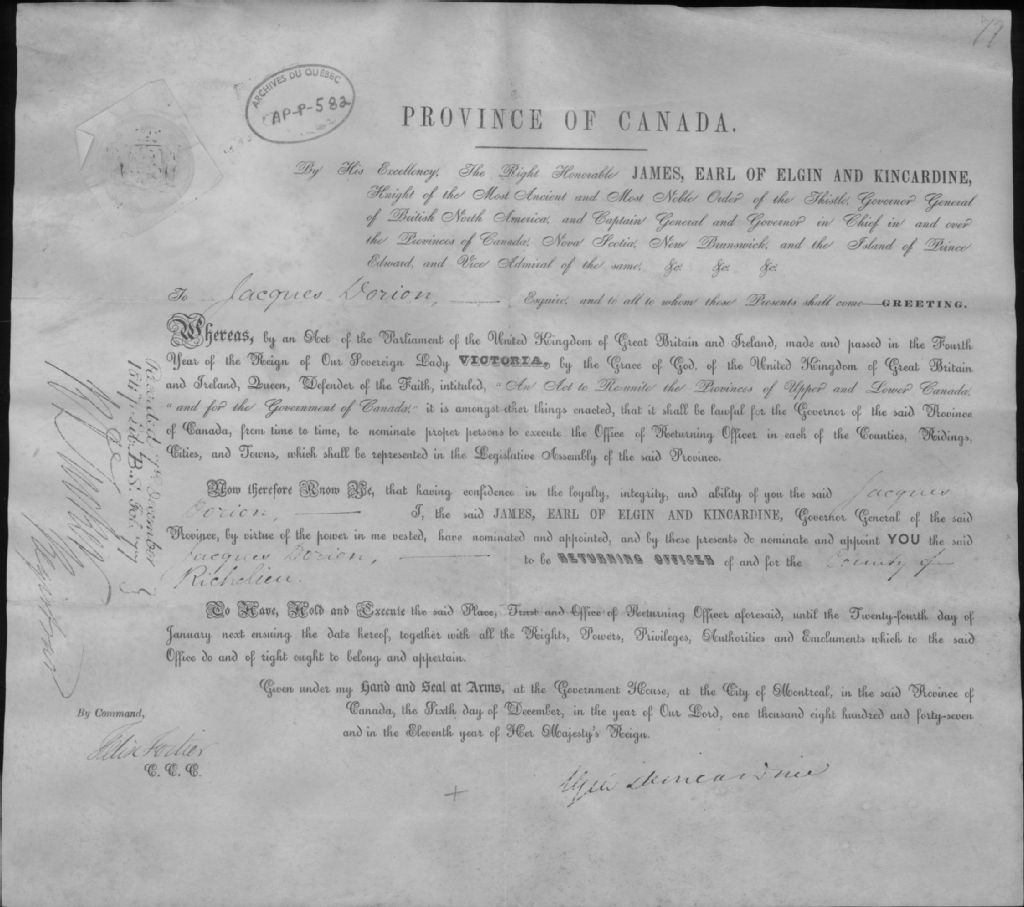 77
ARCHIVES DU QUÉBEC
AP-P-582
PROVINCE OF CANADA.
By His Excellency, The Right Honorable JAMES, EARL OF ELGIN AND KINCARDINE,
Knight of the Most Ancient and Most Noble Order of the Thistle, Governor General
of British North America, and Captain General and Governor in Chief in and over
the Provinces of Canada, Nova Scotia, New Brunswick, and the Island of Prince
Edward, and Vice Admiral of the same, &c. &c. &c.
To Jacques Dorion, Esquire, and to all to whom these Presents shall come—GREETING.
Whereas, by an Act of the Parliament of the United Kingdom of Great Britain and Ireland, made and passed in the Fourth
Year of the Reign of Our Sovereign Lady VICTORIA, by the Grace of God, of the United Kingdom of Great Britain
and Ireland, Queen, Defender of the Faith, intituled, "An Act to Reunite the Provinces of Upper and Lower Canada,
"and for the Government of Canada," it is amongst other things enacted, that it shall be lawful for the Governor of the said Province
of Canada, from time to time, to nominate proper persons to execute the Office of Returning Officer in each of the Counties, Ridings,
Cities, and Towns, which shall be represented in the Legislative Assembly of the said Province.
Now therefore Know Ye, that having confidence in the loyalty, integrity, and ability of you the said Jacques
Dorion, I, the said JAMES, EARL OF ELGIN AND KINCARDINE, Governor General of the said
Province, by virtue of the power in me vested, have nominated and appointed, and by these presents do nominate and appoint YOU the said
Jacques Dorion, to be RETURNING OFFICER of and for the County of
Richelieu.
To Have, Hold and Execute the said Place, Trust and Office of Returning Officer aforesaid, until the Twenty-fourth day of
January next ensuing the date hereof, together with all the Rights, Powers, Privileges, Authorities and Emoluments which to the said
Office do and of right ought to belong and appertain.
Given under my Hand and Seal at Arms, at the Government House, at the City of Montreal, in the said Province of
Canada, the Sixth day of December, in the year of Our Lord, one thousand eight hundred and forty-seven
and in the Eleventh year of Her Majesty's Reign.
By Command,
Felix Fortier
C. C. C.
Elgin & Kincardine
Recorded 7th December
1847